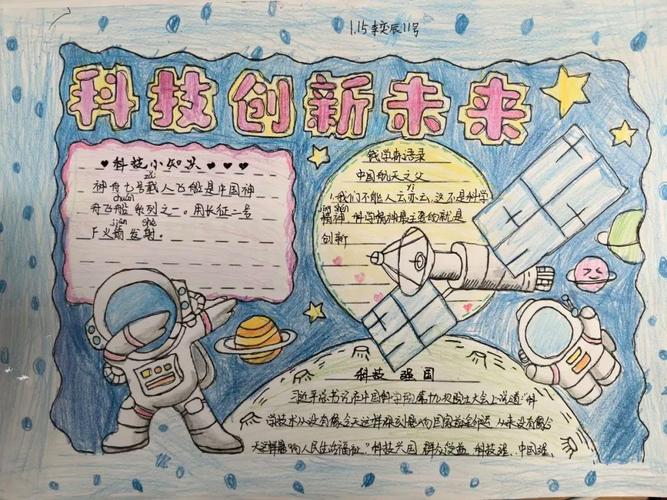 1.15李奕辰11号
科技创新未来
♥科技小知识♥♥♥
zǎi
神舟七号载人飞船是中国神
chuán
舟飞船系列之一。用长征二号
jiàn shè
F火箭发射。
钱学森语录
中国航天之父
yì
我们不能人云亦云,这不是科学
jīng shén
精神,科学精神最重要的就是
创新
科技强国
习近平总书记在中国科学
院士大会上说道:"科
学技术从没有像今天这样深刻影响国家前途命运,从来没有像今
天这样影响人民生活福祉。"科技兴国,科技强、中国强。